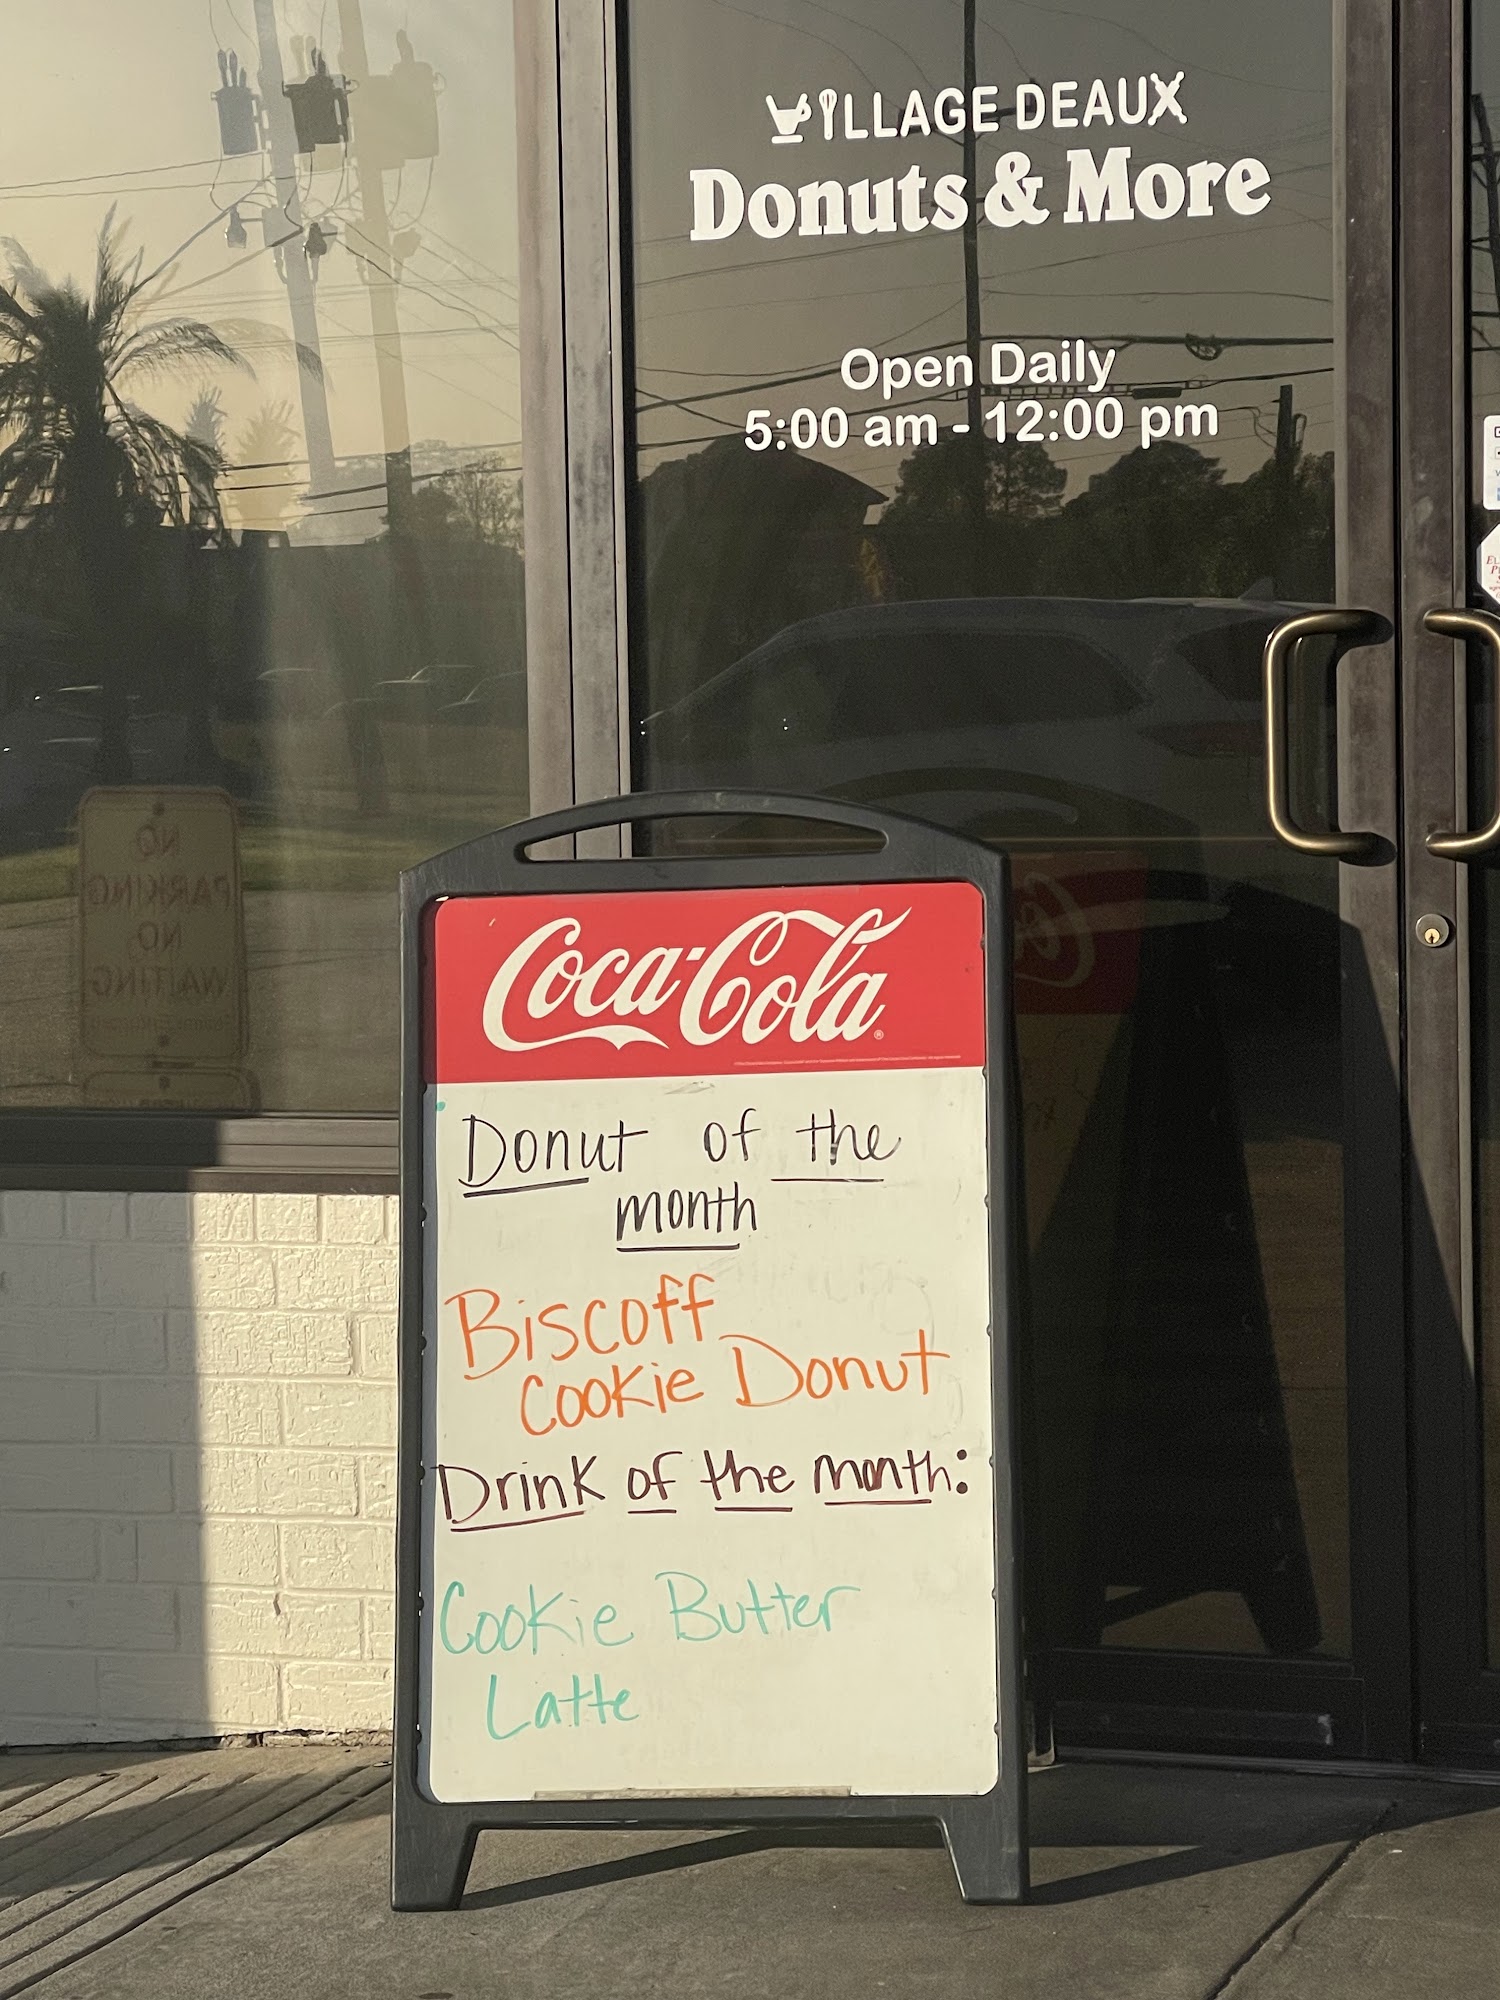 VILLAGE DEAUX
Donuts & More
Open Daily
5:00 am - 12:00 pm
NO
PARKING
NO
WAITING
Coca-Cola®
Donut of the
month
Biscoff
Cookie Donut
Drink of the month:
Cookie Butter
Latte